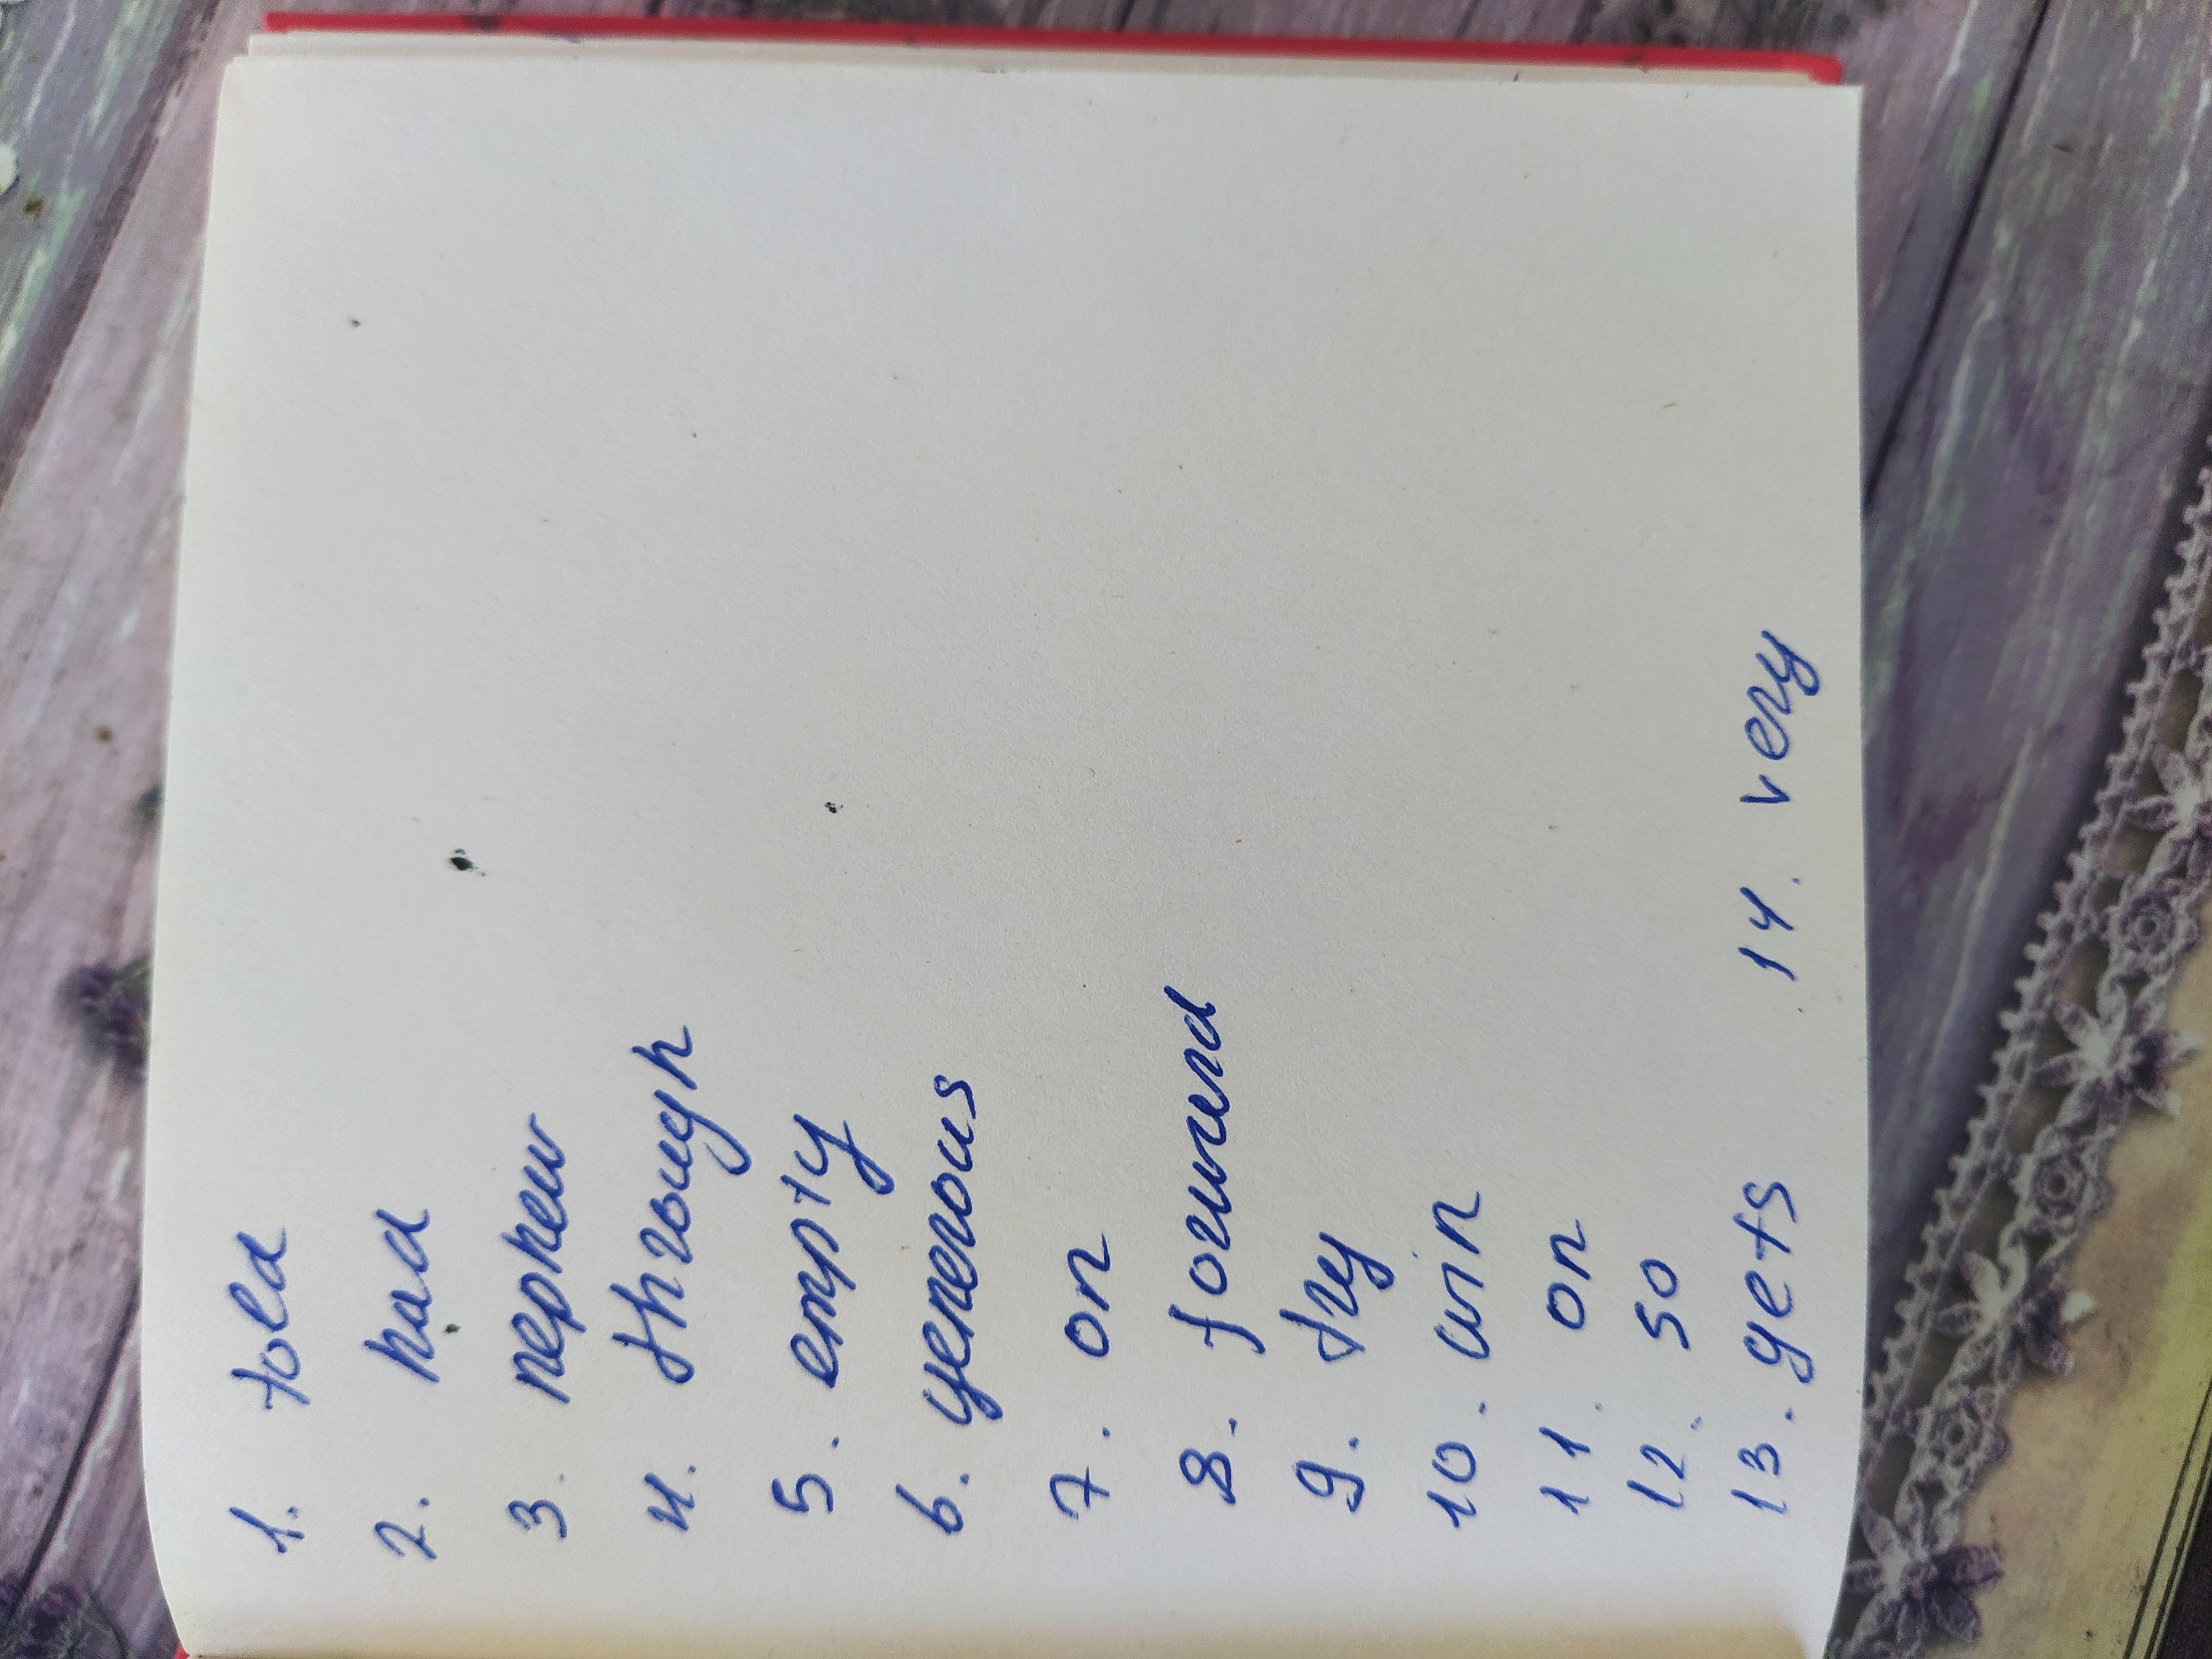 1. told
2. had
3. nephew
4. through
5. empty
6. generous
7. on
8. forward
9. try
10. win
11. on
12. so
13. gets 14. very